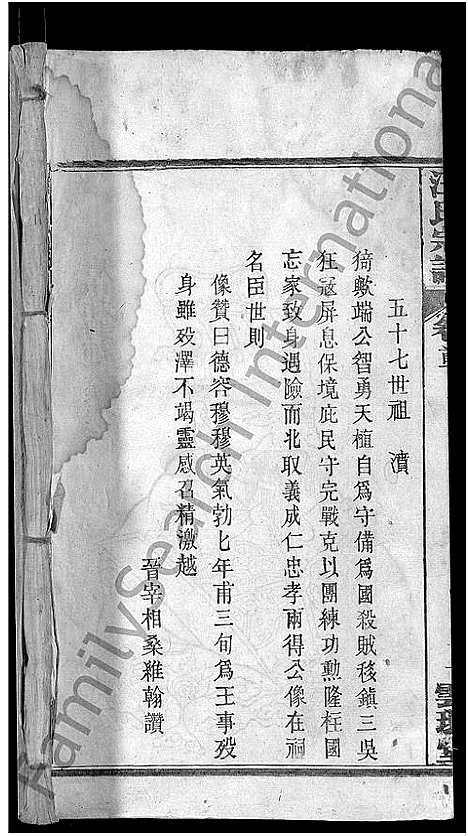 汪氏宗譜
卷首
五十七世祖　濆
猗歟端公智勇天植自爲守備爲國殺賊移鎮三吳
狂寇屏息保境庇民守完戰克以團練功勲隆柱國
忘家致身遇險而北取義成仁忠孝兩得公像在祠
名臣世則
像贊曰德容穆穆英氣勃七年甫三旬爲王事殁
身雖殁澤不竭靈感召精激越
晉宰相桑維翰讚
FamilySearch International